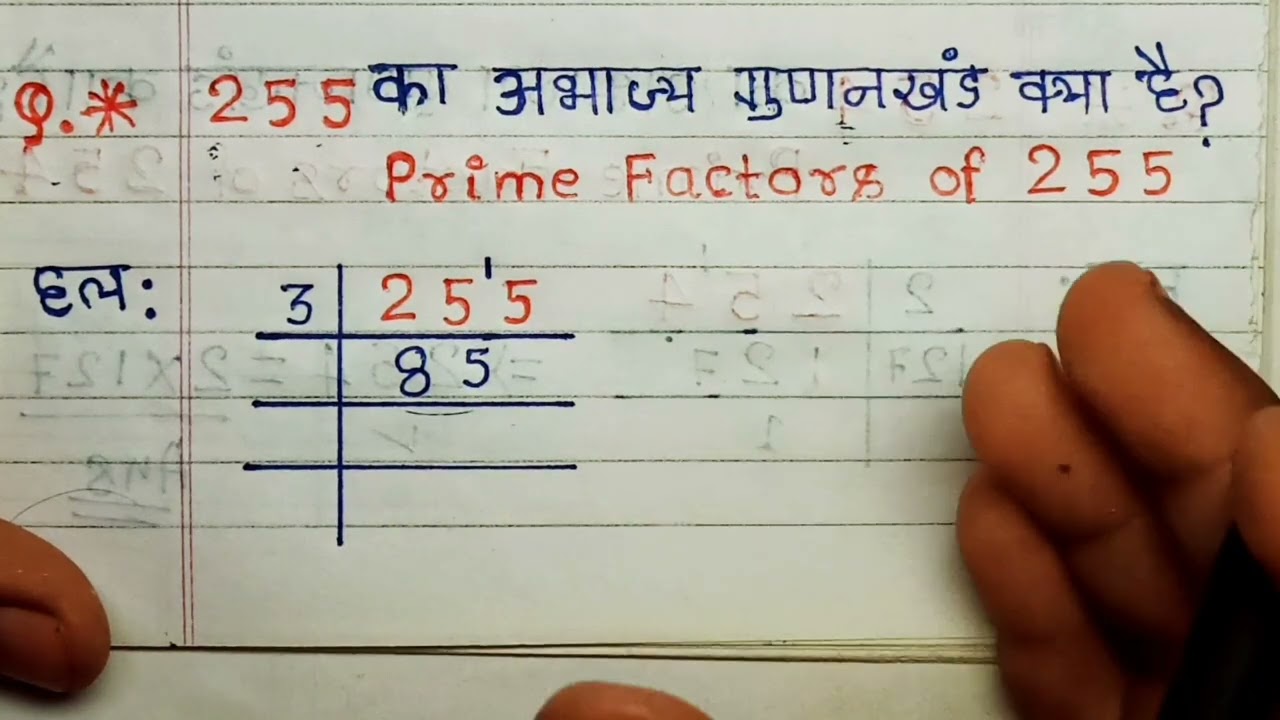 Q.* 255 का अभाज्य गुणनखंड क्या है?
Prime Factors of 255
हल: 3 | 25'5
85